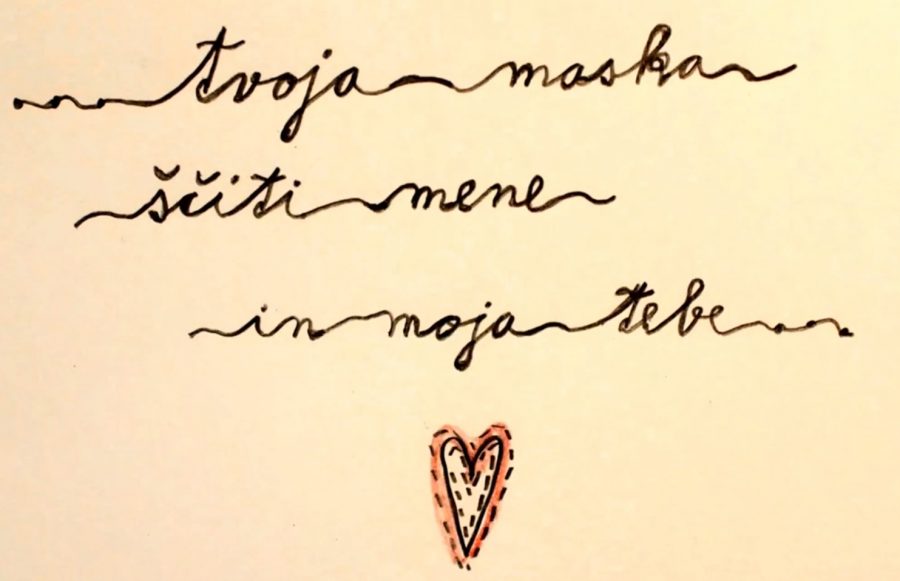 ...tvoja maska
ščiti mene
in moja tebe...